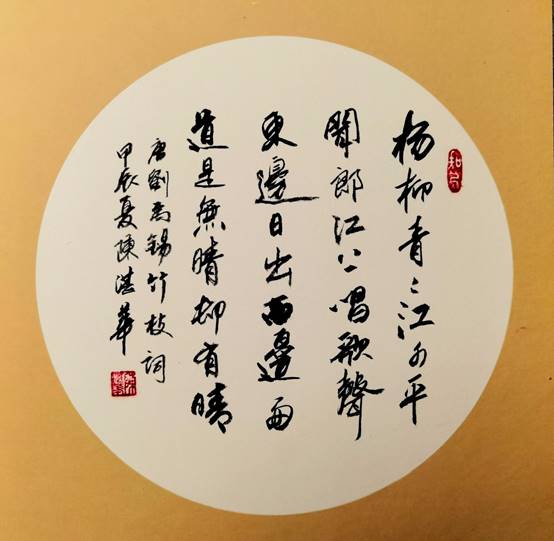 杨柳青々江水平
聞郎江上唱歌聲
東邊日出西邊雨
道是無晴却有晴
唐劉禹錫竹枝詞
甲辰夏陳華